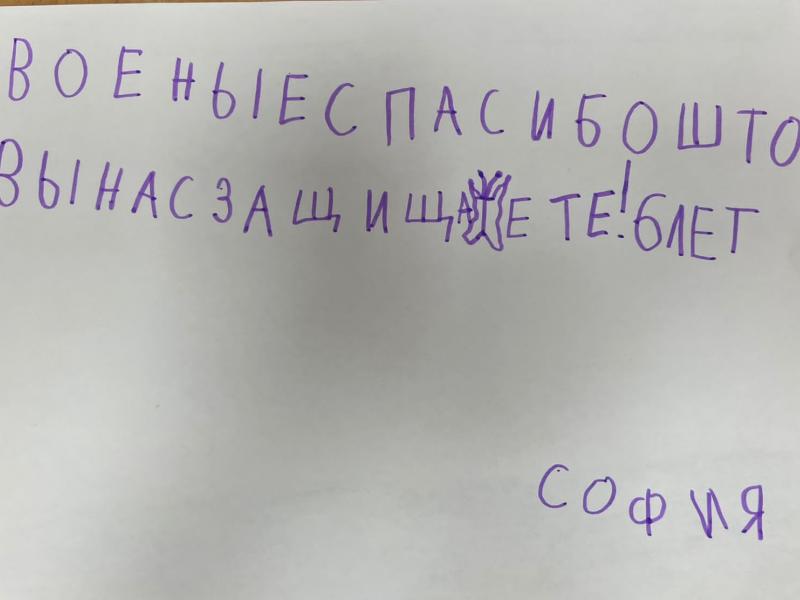 ВОЕНЫЕСПАСИБОШТО
ВЫНАСЗАЩИЩАЕТЕ!6ЛЕТ
СОФИЯ